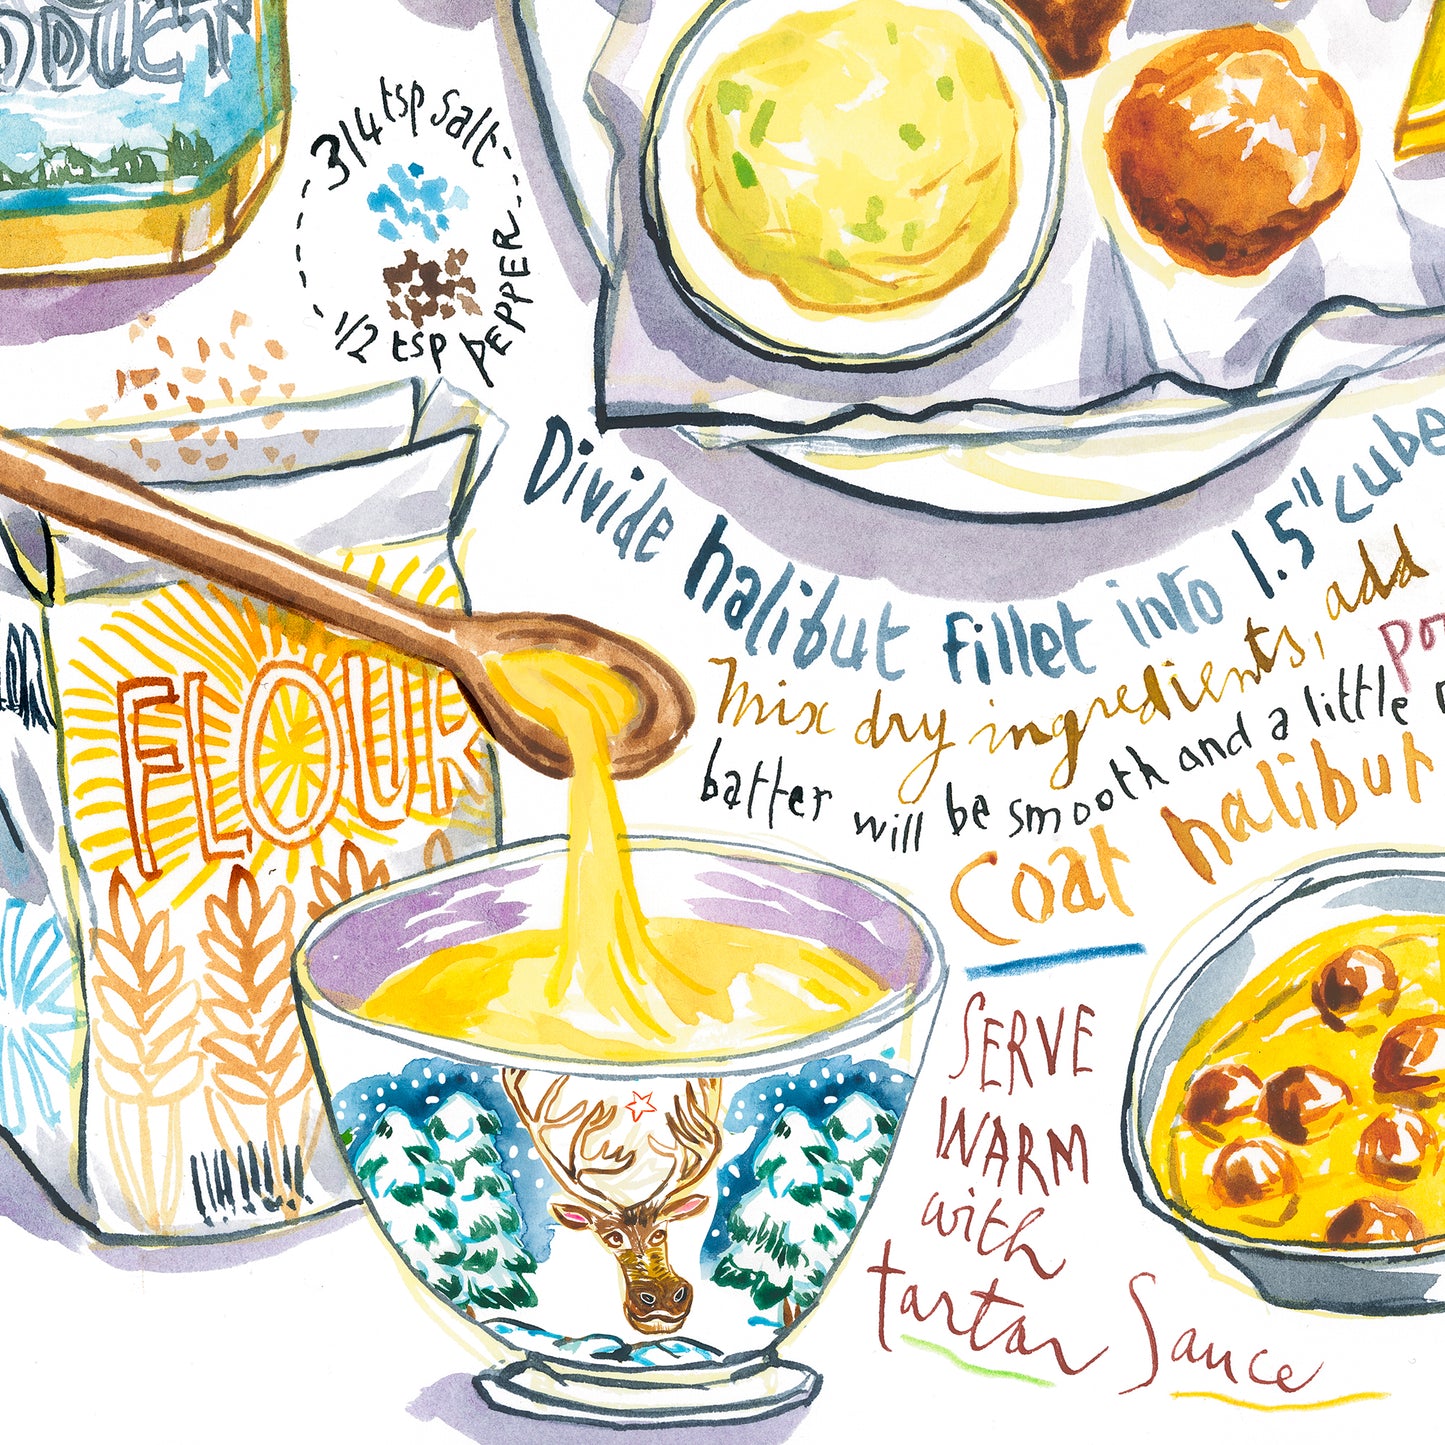 3/4 tsp salt
1/2 tsp PEPPER
FLOUR
Divide halibut fillet into 1.5" cube
Mix dry ingredients, add
batter will be smooth and a little
Coat halibut
SERVE
WARM
with
tartar Sauce